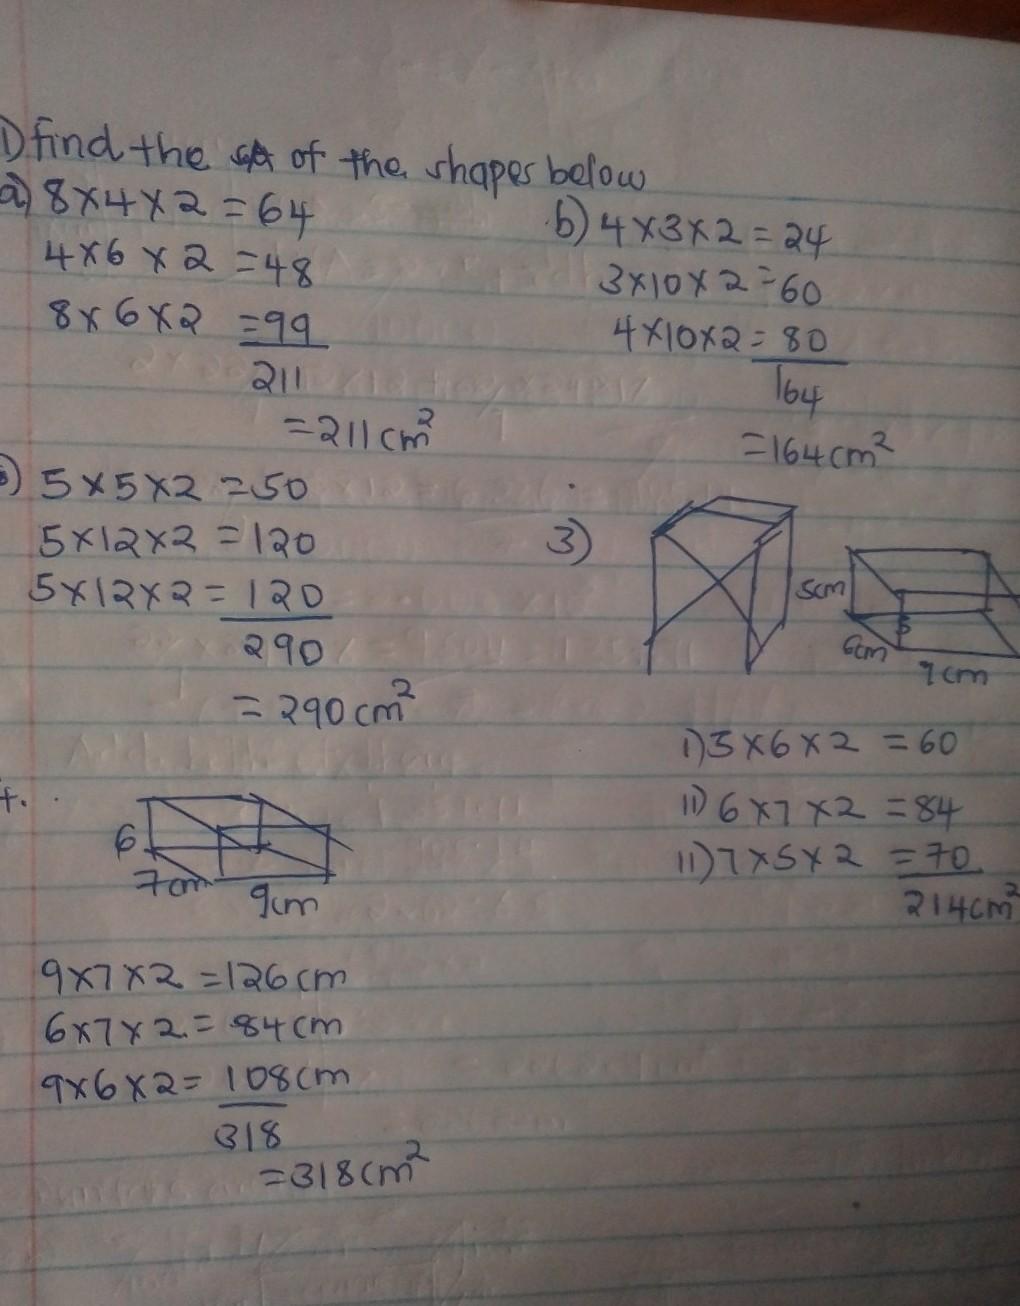 1) find the SA of the shapes below
a) 8×4×2 =64
4×6 ×2 =48
8×6×2 =99
211
=211cm²
b) 4×3×2=24
3×10×2=60
4×10×2= 80
164
=164cm²
5×5×2 =50
5×12×2 =120
5×12×2= 120
290
= 290cm²
3)
5cm
6cm
7cm
i) 5×6×2 =60
ii) 6×7×2 =84
ii) 7×5×2 =70
214cm²
4.
6
7cm
9cm
9×7×2 =126cm
6×7×2= 84cm
9×6×2= 108cm
318
=318cm²